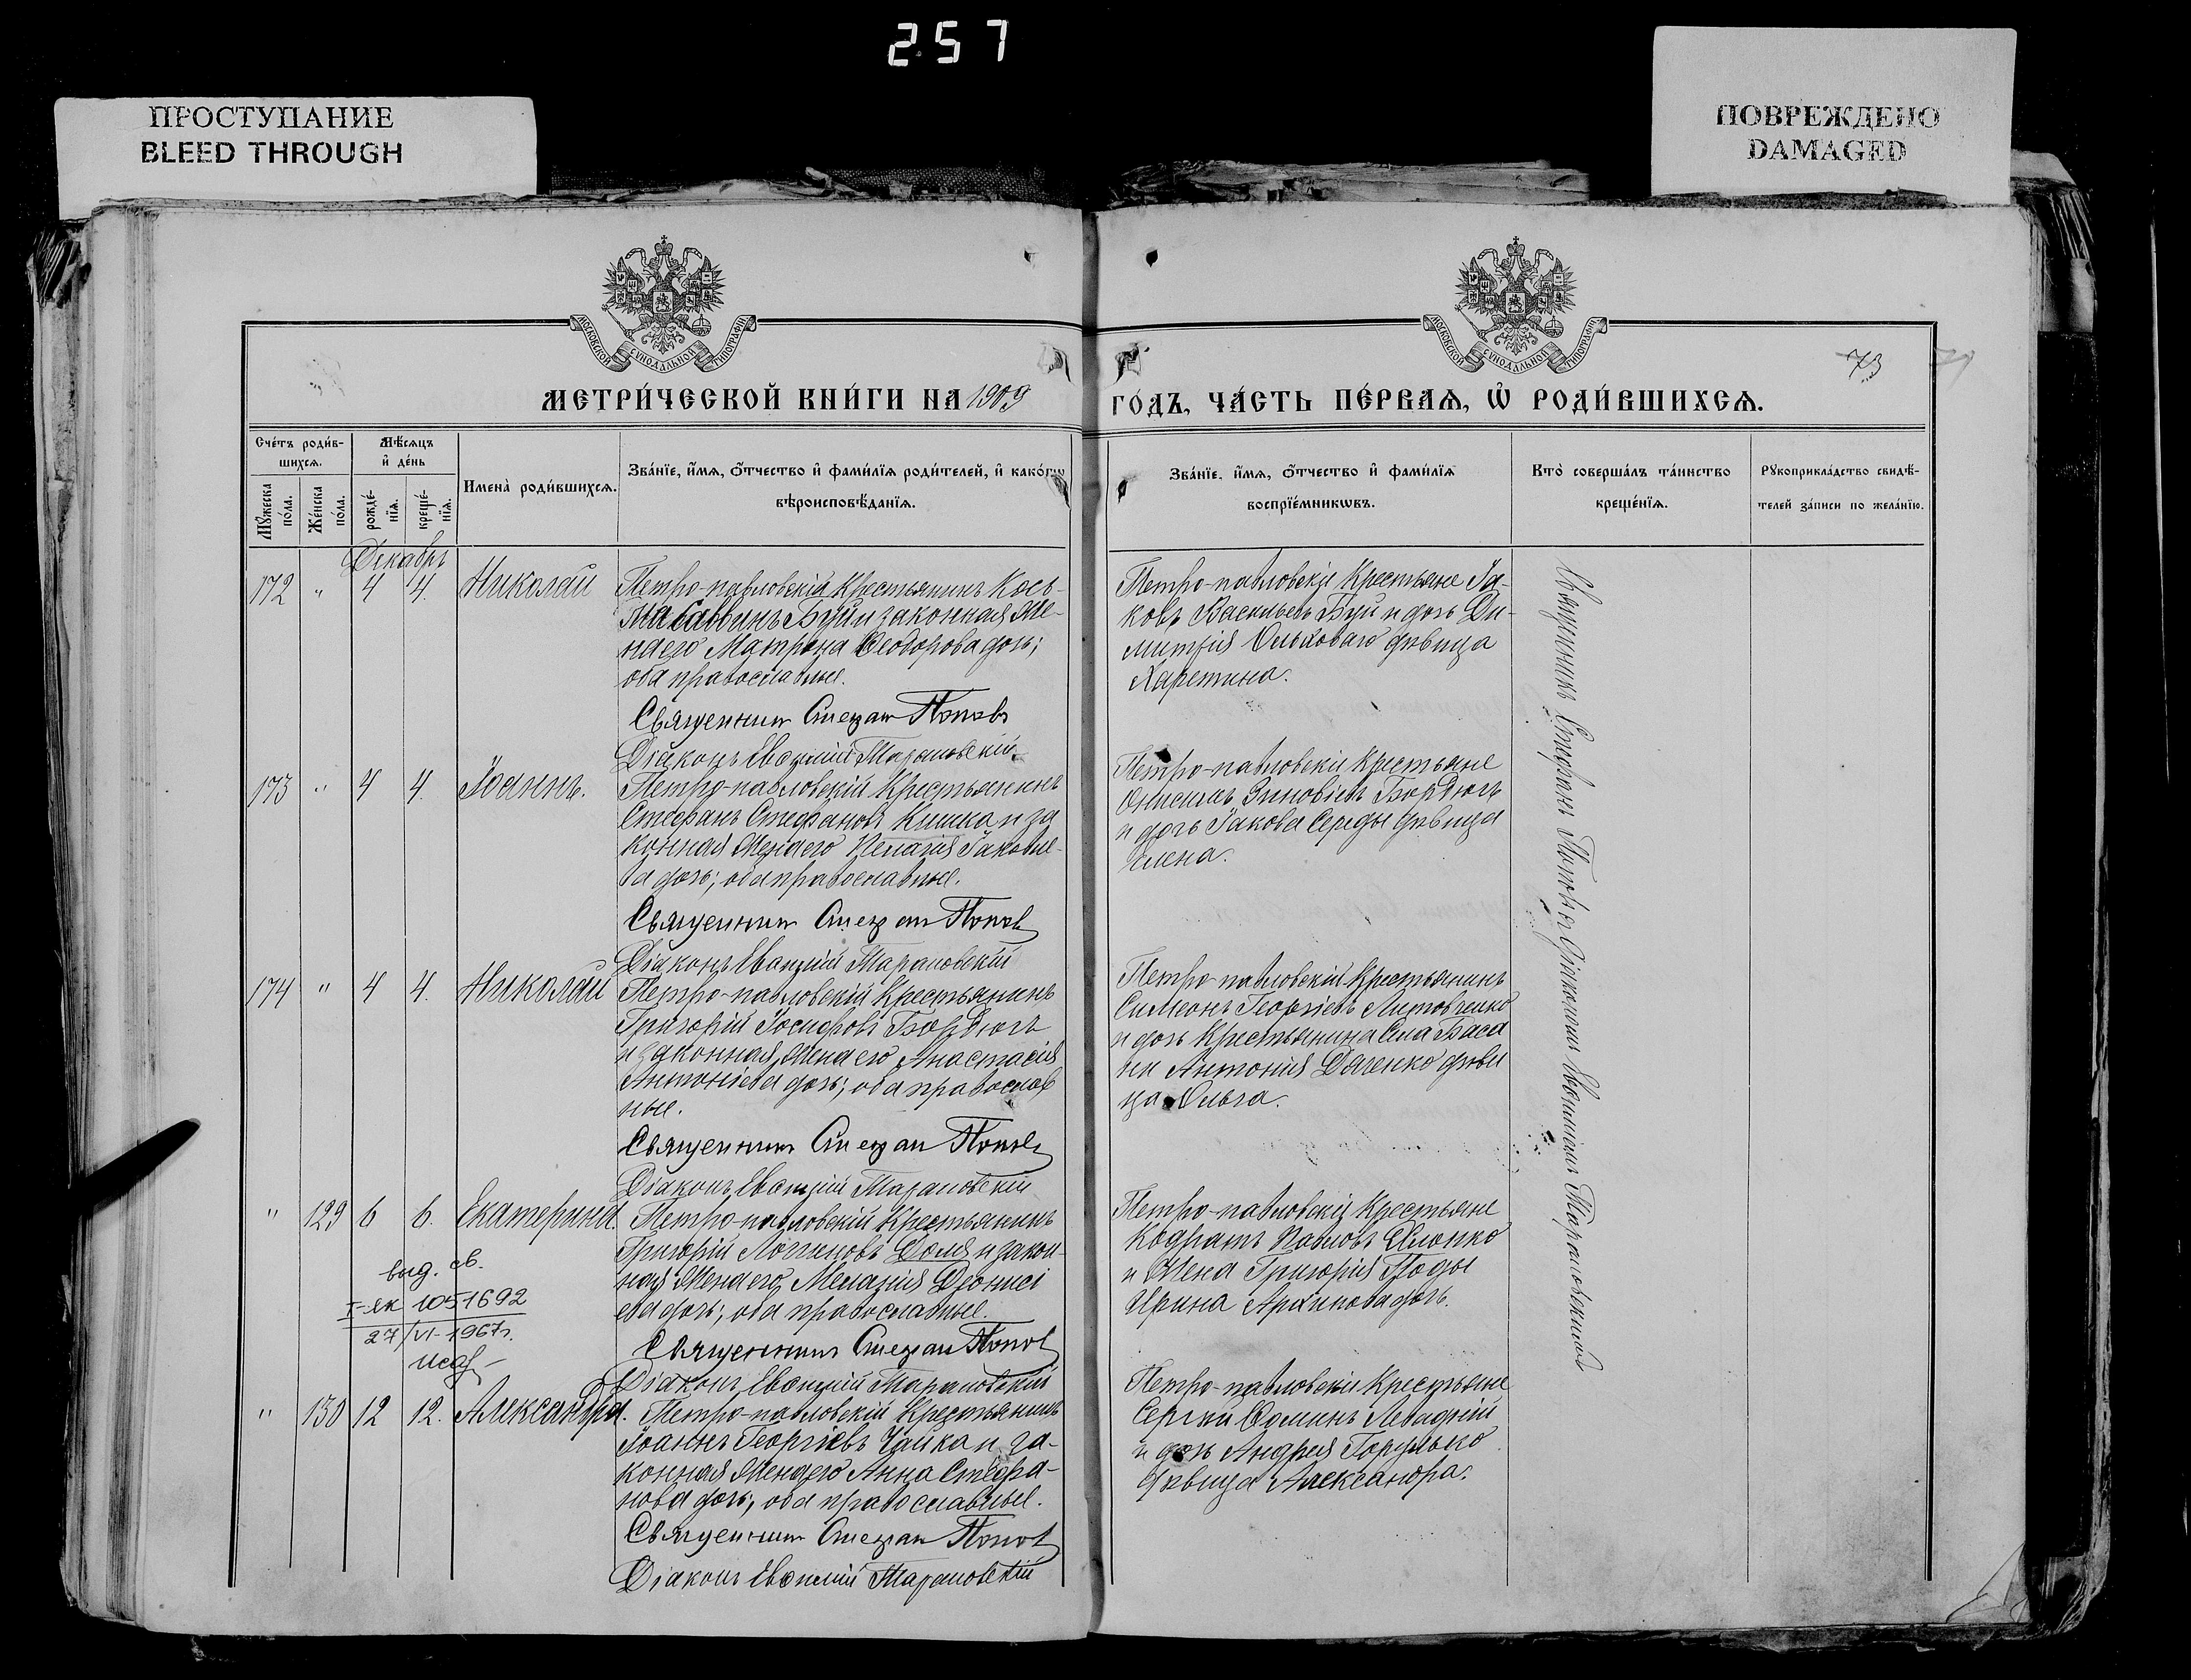 257
ПРОСТУПАНИЕ
BLEED THROUGH
ПОВРЕЖДЕНО
DAMAGED
МОСКОВСКОЙ СѴНОДАЛЬНОЙ ТИПОГРАФІИ
МОСКОВСКОЙ СѴНОДАЛЬНОЙ ТИПОГРАФІИ
73
МЕТРИ́ЧЕСКОЙ КНИ́ГИ НА 1909
ГО́ДЪ, ЧА́СТЬ ПЕ́РВАѦ, Ѡ҆ РОДИ́ВШИХСѦ.
Сче́тъ роди́в-
шихсѧ.
Мѣ́сѧцъ
и҆ де́нь
Мꙋ́жеска по́ла.
Же́нска по́ла.
рожде́-
нїѧ.
креще́-
нїѧ.
Имена̀ роди́вшихсѧ.
Зва́нїе, и҆́мѧ, ѻ҆́тчество и҆ фами́лїѧ роди́телей, и҆ како́гѡ
вѣроисповѣ́данїѧ.
Зва́нїе, и҆́мѧ, ѻ҆́тчество и҆ фами́лїѧ
воспрїе́мникѡвъ.
Кто̀ соверша́лъ та́инство
креще́нїѧ.
Рꙋкоприкла́дство свидѣ́-
телей за́писи по жела́нїю.
Декабрь
172 " 4 4. Николай
Петро-павловскій крестьянинъ Кось-
ма Саввинъ Буй и законная же-
на его Матрона Ѳеодорова дочь;
оба православные.
Священник Стефан Попов
Діаконъ Евфимій Тарановскій
Петро-павловскіе крестьяне Іа-
ковъ Васильевъ Буй и дочь Ди-
митрія Ольховаго дѣвица
Харитина.
173 " 4 4. Іоаннъ.
Петро-павловскій крестьянинъ
Стефанъ Стефановъ Кишка и за
конная жена его Пелагія Іаковле-
ва дочь; оба православные.
Священник Стефан Попов
Діаконъ Евфимій Тарановскій
Петро-павловскіе крестьяне
Онисимъ Зиновіевъ Бордюгъ
и дочь Іакова Середы дѣвица
Елена.
174 " 4 4. Николай
Петро-павловскій крестьянинъ
Григорій Іосифовъ Бордюгъ
и законная жена его Анастасія
Антоніева дочь; оба православ
ные.
Священник Стефан Попов
Діаконъ Евфимій Тарановскій
Петро-павловскій крестьянинъ
Симеонъ Георгіевъ Литовченко
и дочь крестьянина села Баса
ни Антонія Дяченко дѣви
ца Ольга.
" 129 6 6. Екатерина.
Петро-павловскій крестьянинъ
Григорій Логгиновъ Доля и закон-
ная жена его Мелагія Діонисі
ева дочь; оба православные.
Священник Стефан Попов
Діаконъ Евфимій Тарановскій
выд. св.
I-як 1051692
27/VI-1967г.
Петро-павловскіе крестьяне
Кодратъ Павловъ
и жена Григорія
Ирина Архипова дочь.
" 130 12 12. Александра.
Петро-павловскій крестьянинъ
Іоаннъ Георгіевъ Чайка и за-
конная жена его Анна Стефа-
нова дочь; оба православные.
Священник Стефан Попов
Діаконъ Евфимій Тарановскій
Петро-павловскіе крестьяне
Сергій Ѳоминъ Левадній
и дочь Андрея
дѣвица Александра.
Священникъ Стефанъ Поповъ съ Діакономъ Евфиміемъ Тарановскимъ